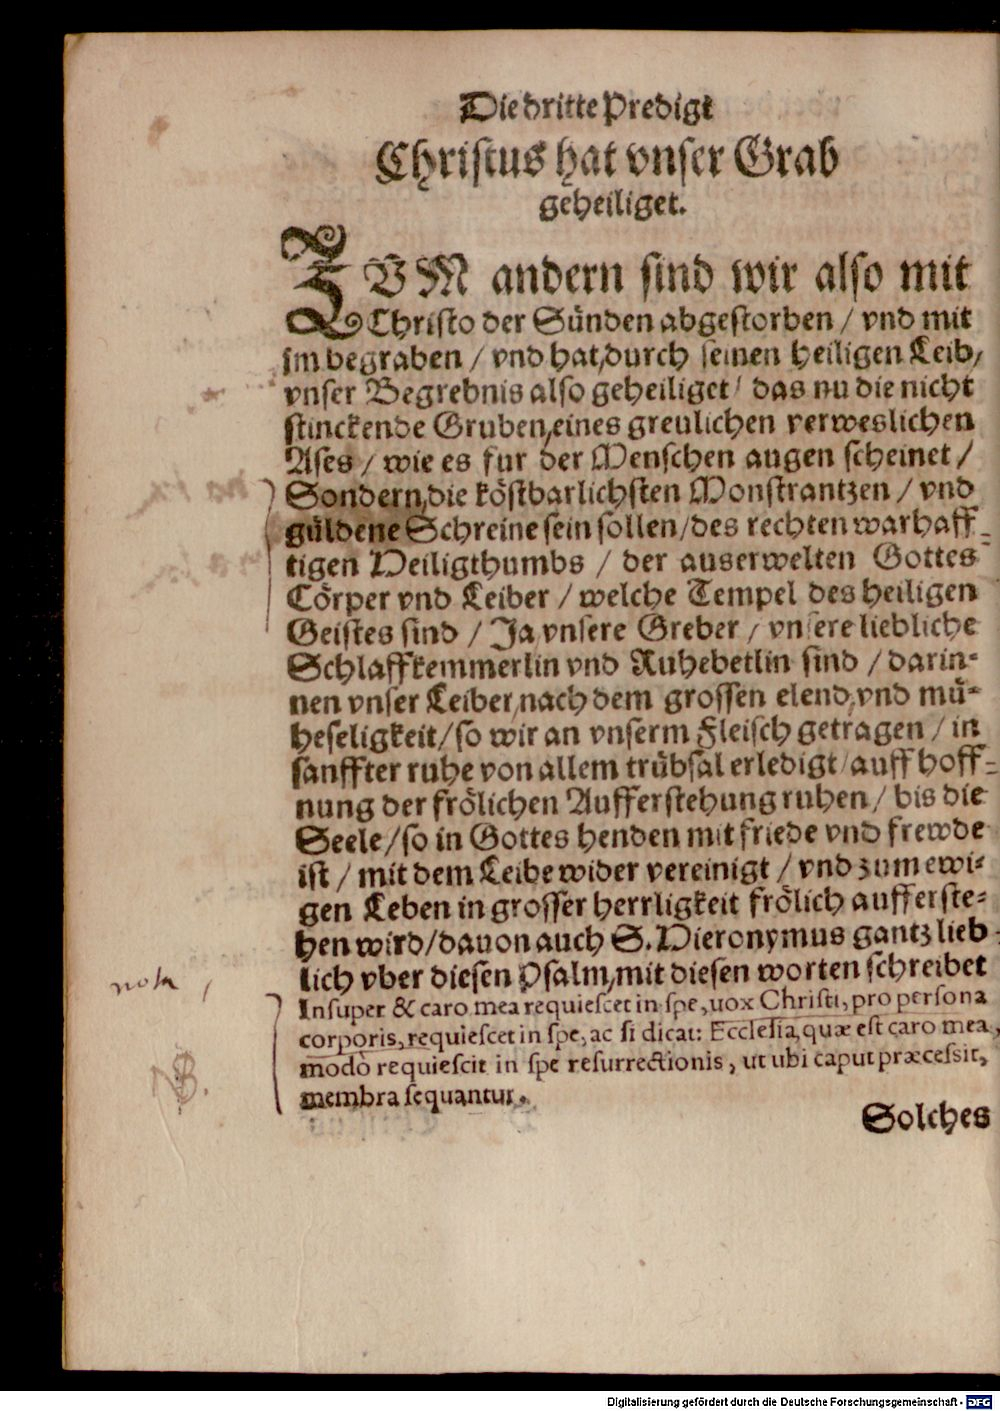 Die dritte Predigt
Christus hat vnser Grab
geheiliget.
ZVM andern sind wir also mit
Christo der Sünden abgestorben / vnd mit
jm begraben / vnd hat, durch seinen heiligen Leib,
vnser Begrebnis also geheiliget / das nu die nicht
stinckende Gruben, eines greulichen verweslichen
Ases / wie es fur der Menschen augen scheinet /
Sondern, die köstbarlichsten Monstrantzen / vnd
güldene Schreine sein sollen / des rechten warhaff-
tigen Heiligthumbs / der auserwelten Gottes
Cörper vnd Leiber / welche Tempel des heiligen
Geistes sind / Ja vnsere Greber / vnsere liebliche
Schlaffkemmerlin vnd Ruhebetlin sind / darin-
nen vnser Leiber, nach dem grossen elend, vnd mü-
heseligkeit / so wir an vnserm Fleisch getragen / in
sanffter ruhe von allem trübsal erledigt / auff hoff-
nung der frölichen Aufferstehung ruhen / bis die
Seele / so in Gottes henden mit friede vnd frewde
ist / mit dem Leibe wider vereinigt / vnd zum ewi-
gen Leben in grosser herrligkeit frölich aufferste-
hen wird / dauon auch S. Hieronymus gantz lieb-
lich vber diesen Psalm, mit diesen worten schreibet
nota
Insuper & caro mea requiescet in spe, uox Christi, pro persona
corporis, requiescet in spe, ac si dicat: Ecclesia, quæ est caro mea,
modò requiescit in spe resurrectionis, ut ubi caput præcessit,
NB.
membra sequantur.
Solches
Digitalisierung gefördert durch die Deutsche Forschungsgemeinschaft - DFG